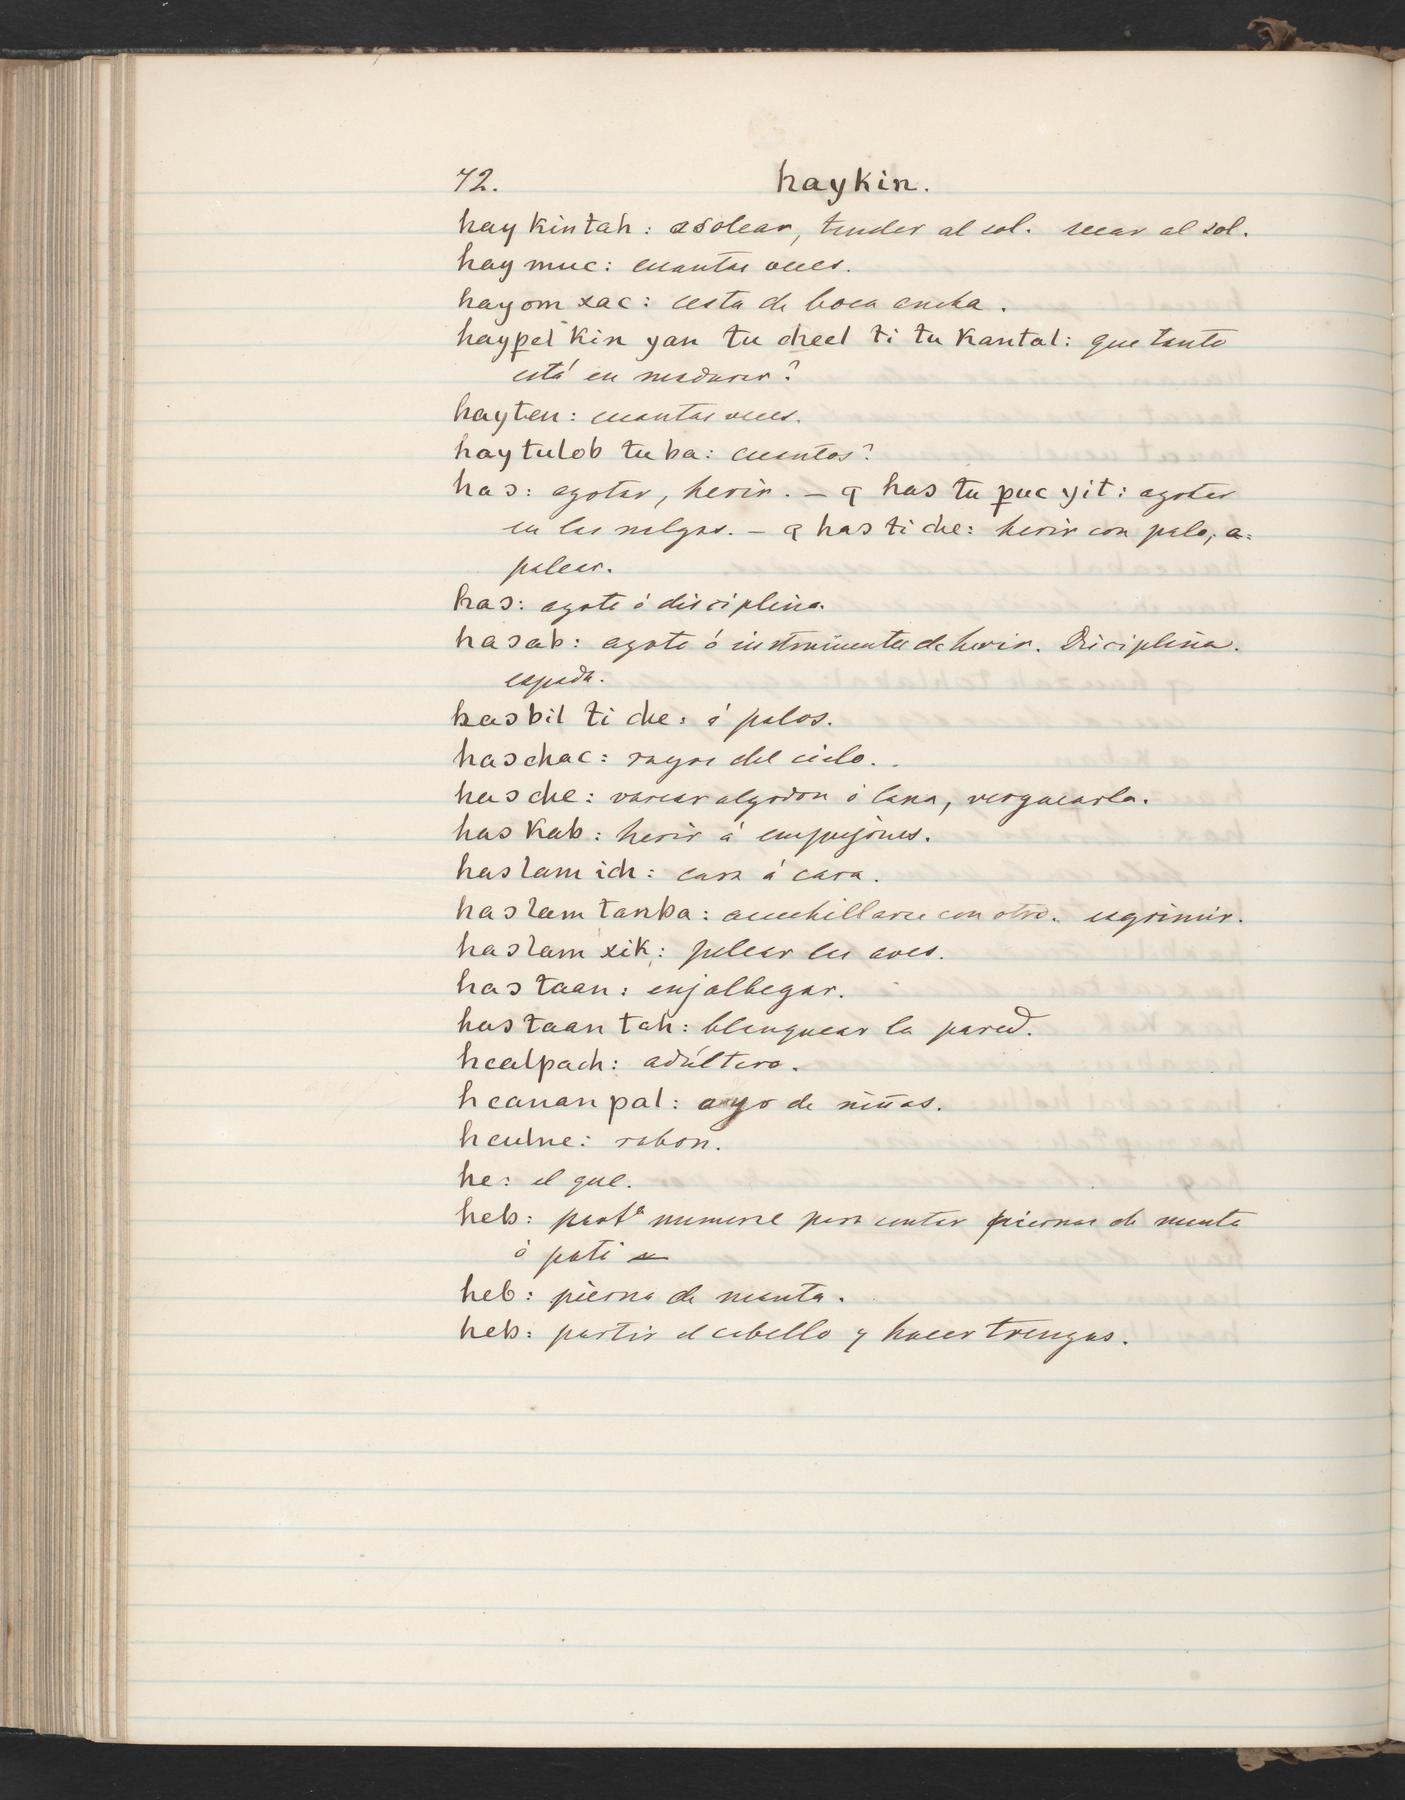 72. haykin.
hay kintah: asolear, tender al sol. secar al sol.
hay muc: cuantas veces.
hayom xac: cesta de boca ancha.
haypel kin yan tu cheel ti tu kantal: que tanto
está en madurar?
hayten: cuantas veces.
haytulob tuba: cuantos?
has: azotar, herir. – q has tu puc yit: azotar
en las nalgas. – q has ti che: herir con palo, a=
palear.
has: azote ó disciplina.
hasab: azote ó instrumento de herir. Disciplina.
espada.
hasbil ti che: á palos.
haschac: rayos del cielo.
hasche: varear algodon ó lana, verguearla.
has kab: herir á empujones.
haslam ich: cara á cara.
haslam tanba: acuchillarse con otro. esgrimir.
haslam xik: pelear las aves.
has taan: enjalbegar.
hastaan tah: blanquear la pared.
hcalpach: adúltero.
hcanan pal: ayo de niños.
hculne: rabon.
he: el que.
heb: parta numeral para contar piernas de manta
ó pati
heb: pierna de manta.
heb: partir el cabello y hacer trenzas.